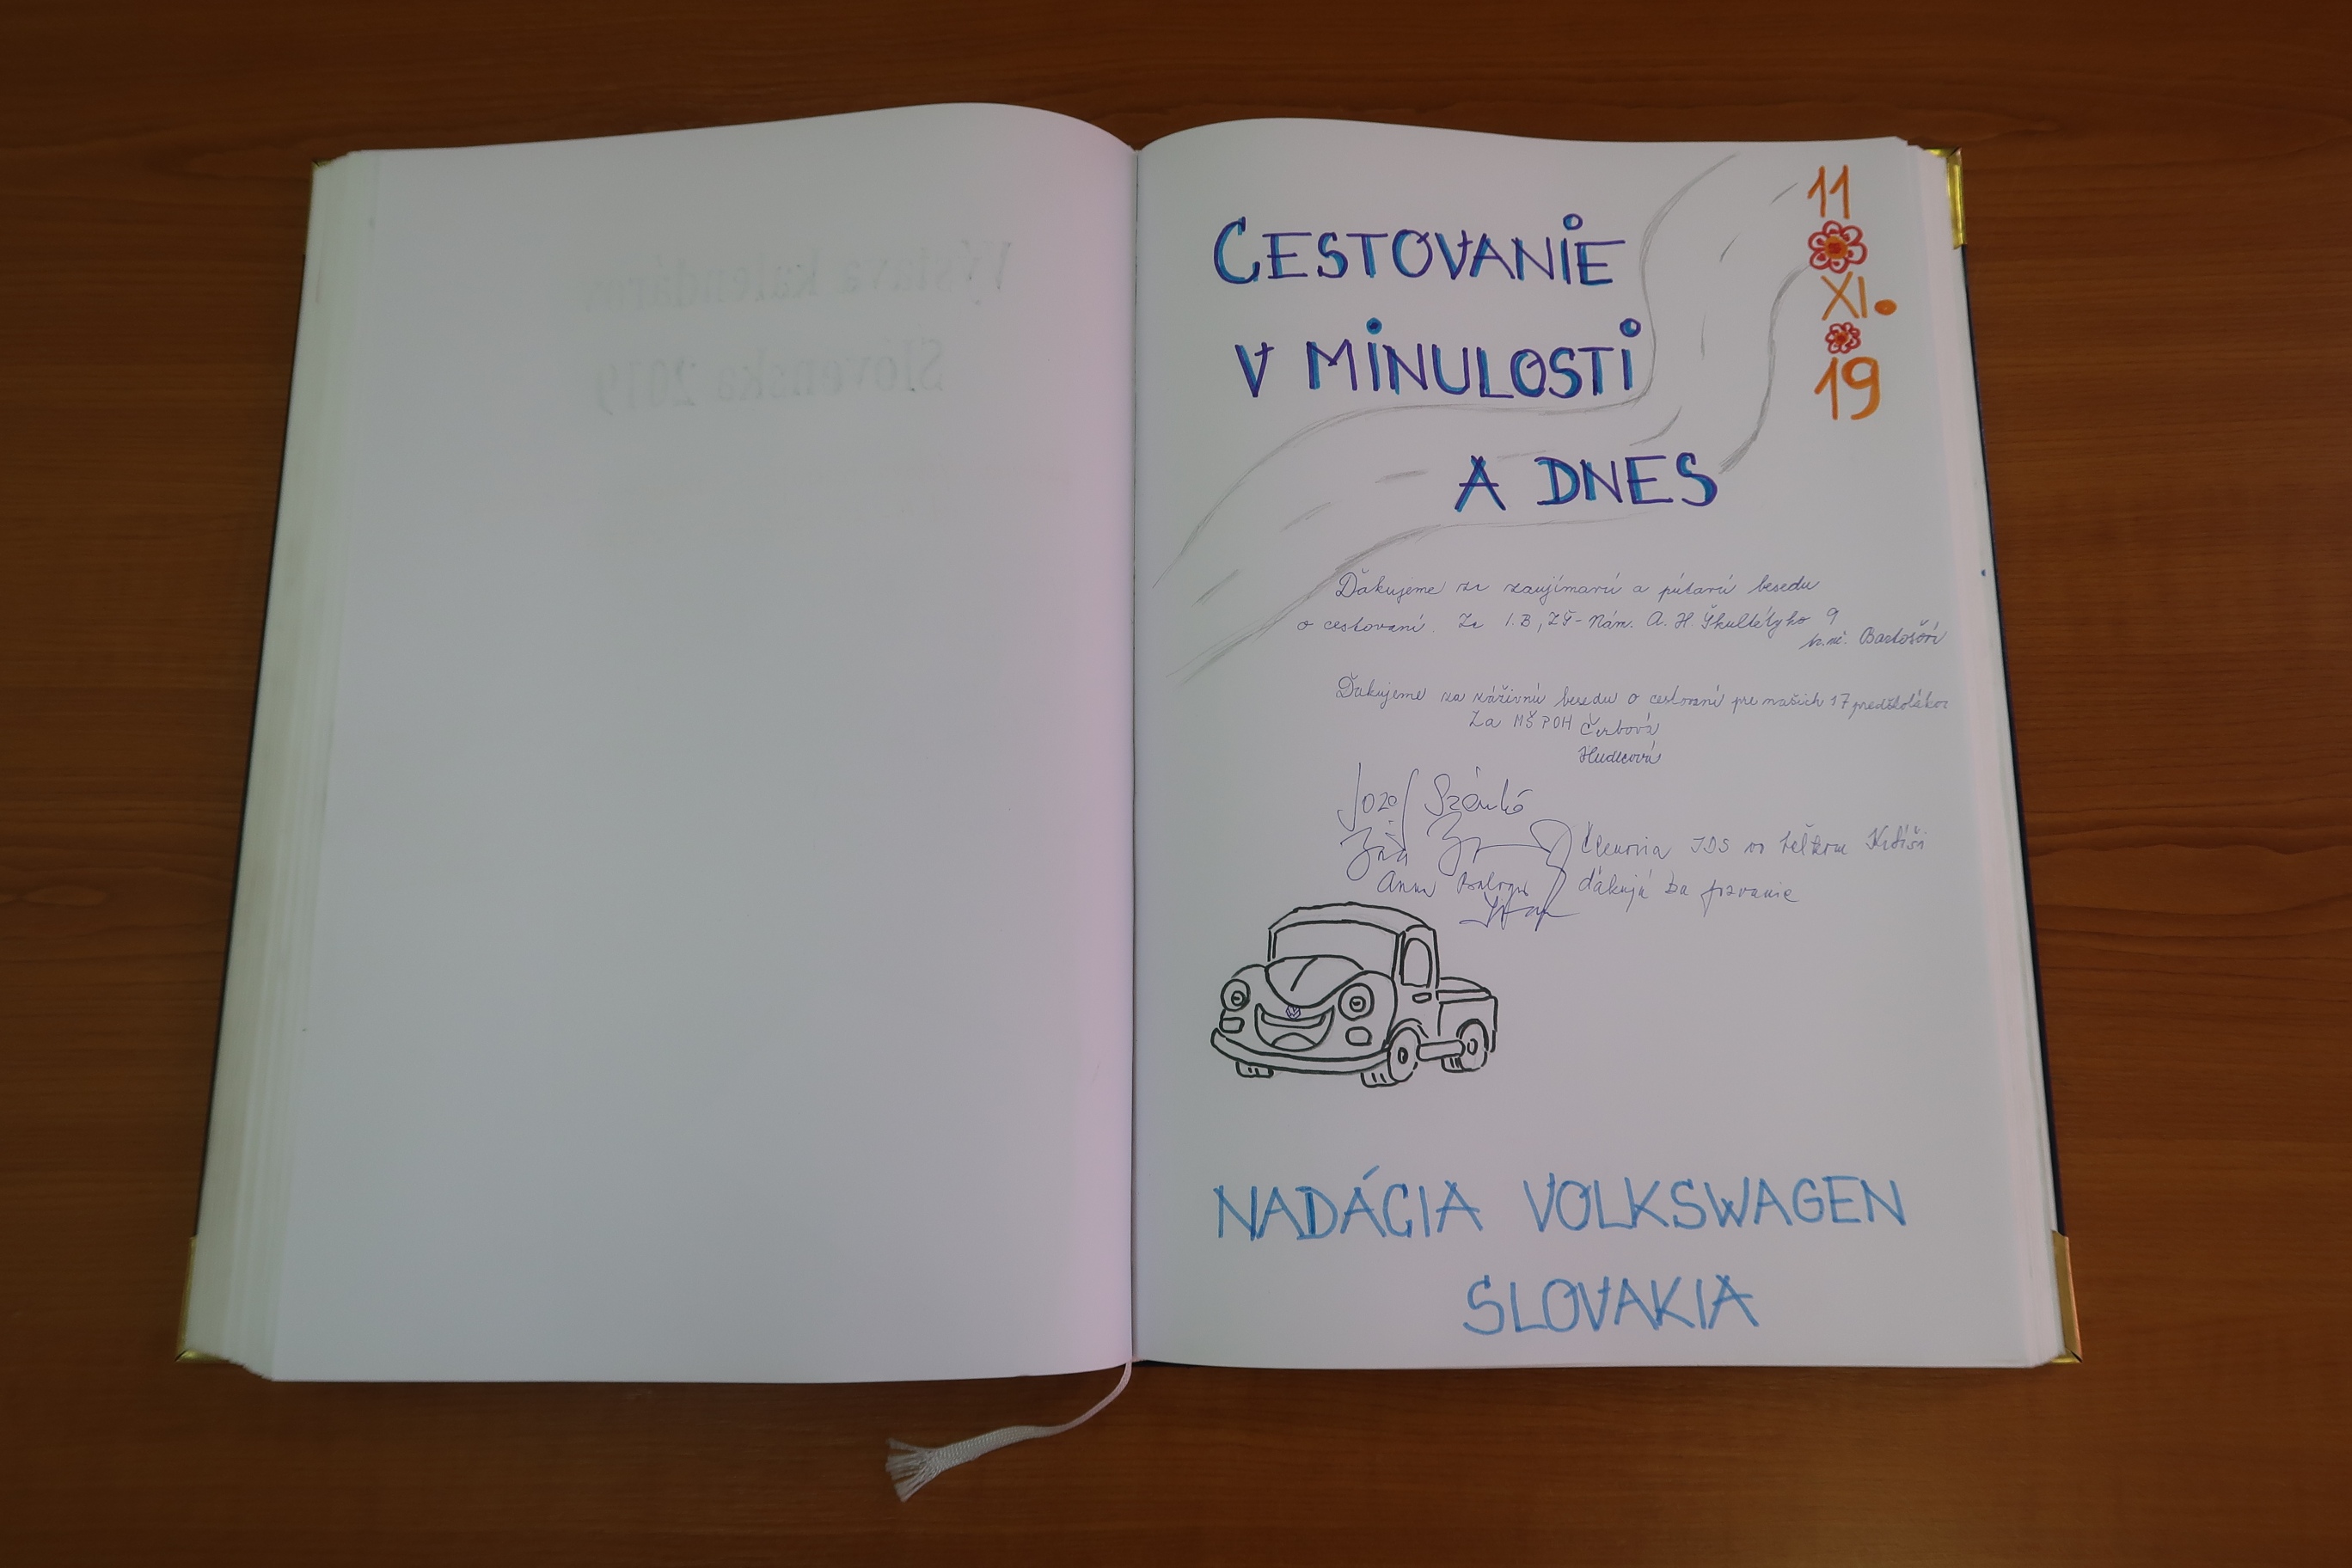 Výstava kalendárov
Slovenska 2019
CESTOVANIE
V MINULOSTI
A DNES
11
XI.
19
Ďakujeme za zaujímavú a pútavú besedu
o cestovaní. Za 1.B, ZŠ - Nám. A. H. Škultétyho 9
p.uč. Bartošová
Ďakujeme za záživnú besedu o cestovaní pre našich 17 predškolákov
Za MŠ POH Čerbová
Hudecová
Jozef
Členovia JDS vo Veľkom Krtíši
Anna
ďakujú za pozvanie
NADÁCIA VOLKSWAGEN
SLOVAKIA